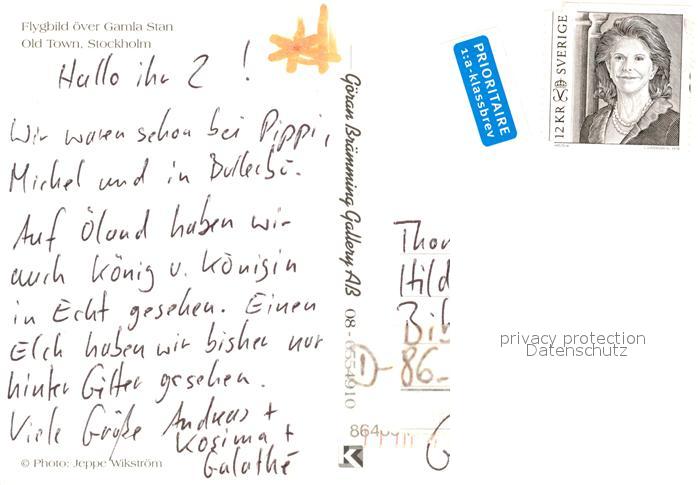 Flygbild över Gamla Stan
Old Town, Stockholm
Hallo ihr 2 !
Wir waren schon bei Pippi,
Michel und in Bullerbü.
Auf Öland haben wir
auch König u. Königin
in Echt gesehen. Einen
Elch haben wir bisher nur
hinter Gitter gesehen.
Viele Grüße Andreas +
Kosima +
Galathé
© Photo: Jeppe Wikström
Göran Brämming Gallery AB 08-6554910
PRIORITAIRE
1:a-klassbrev
12 KR SVERIGE
Thor
Hild
Bib
D-86
privacy protection
Datenschutz
K